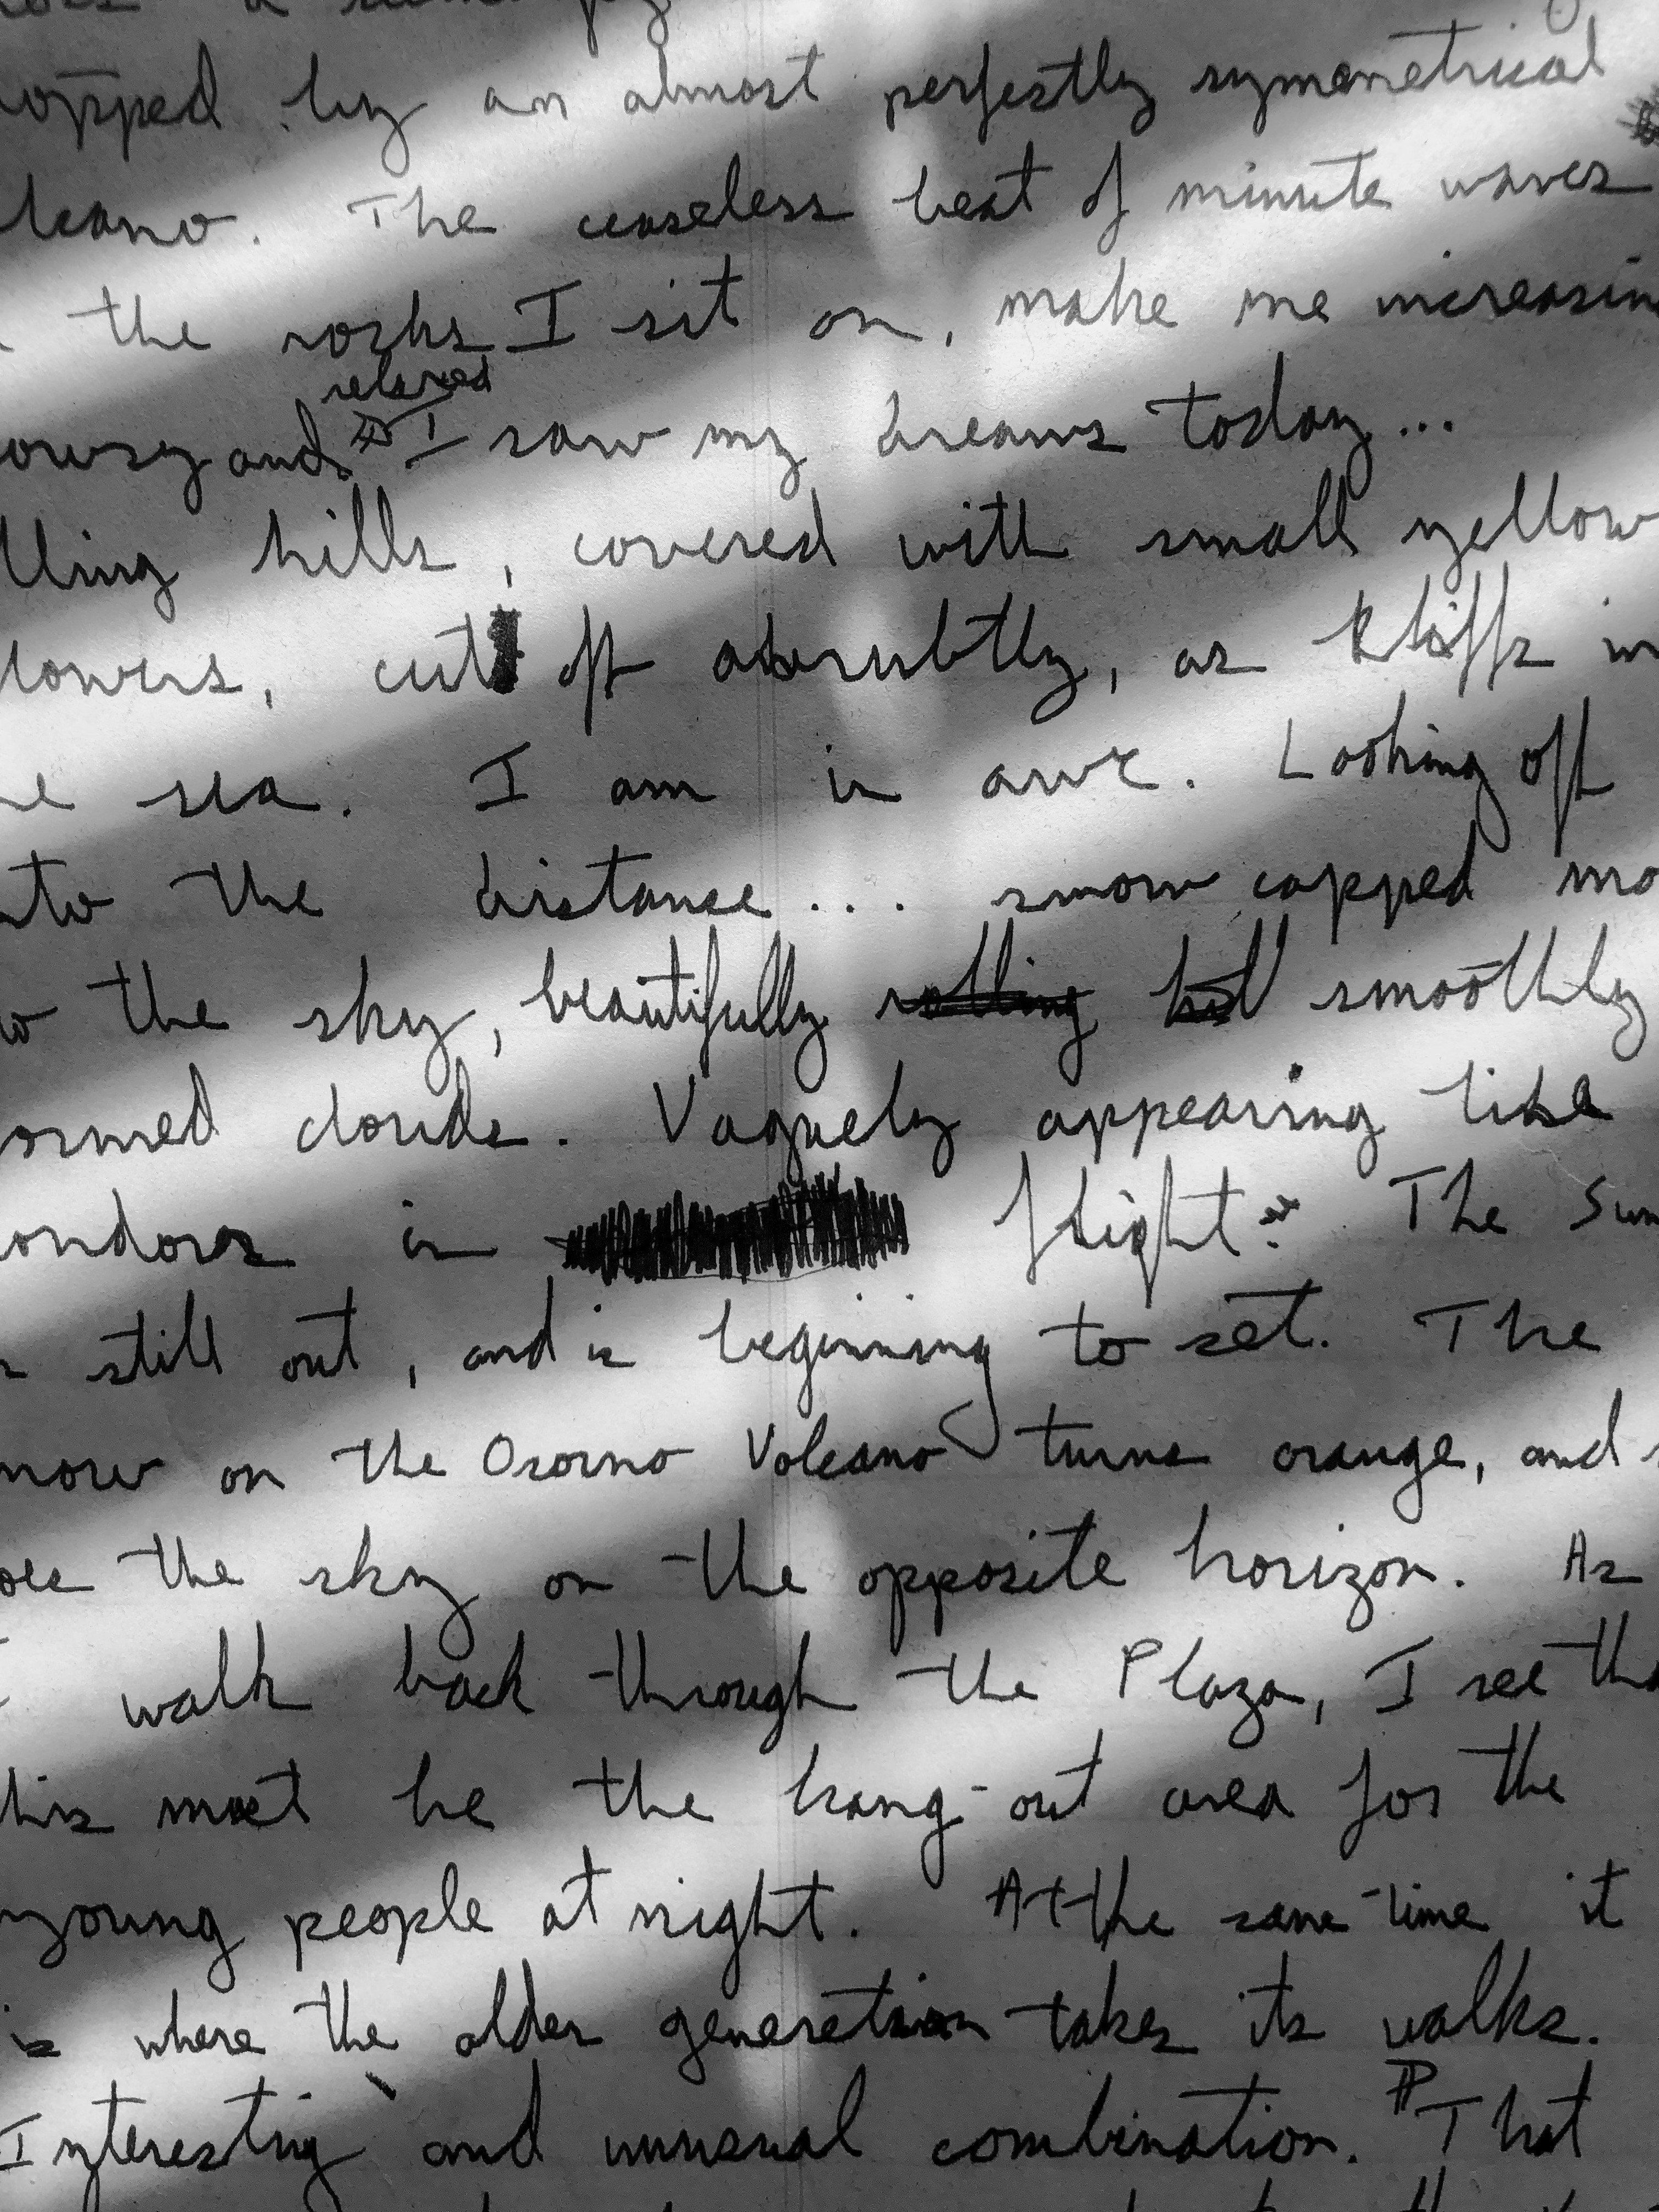 opped by an almost perfectly symmetrical
lcano. The ceaseless beat of minute waves
the rocks I sit on, make me increasin
relaxed
owsy and I saw my dreams today...
lling hills, covered with small yellow
lowers, cut off abrubtly, as kliffs in
e sea. I am in awe. Looking off
nto the distance... snow capped mo
o the sky, beautifully rolling hill smoothly
ormed clouds. Vaguely appearing like
ondors in flight. The Sun
still out, and is beginning to set. The
now on the Osorno Volcano turns orange, and
oes the sky on the opposite horizon. As
I walk back through the Plaza, I see tha
his must be the hang-out area for the
young people at night. At the same time it
is where the older generation takes its walks.
Interesting and unusual combination. That